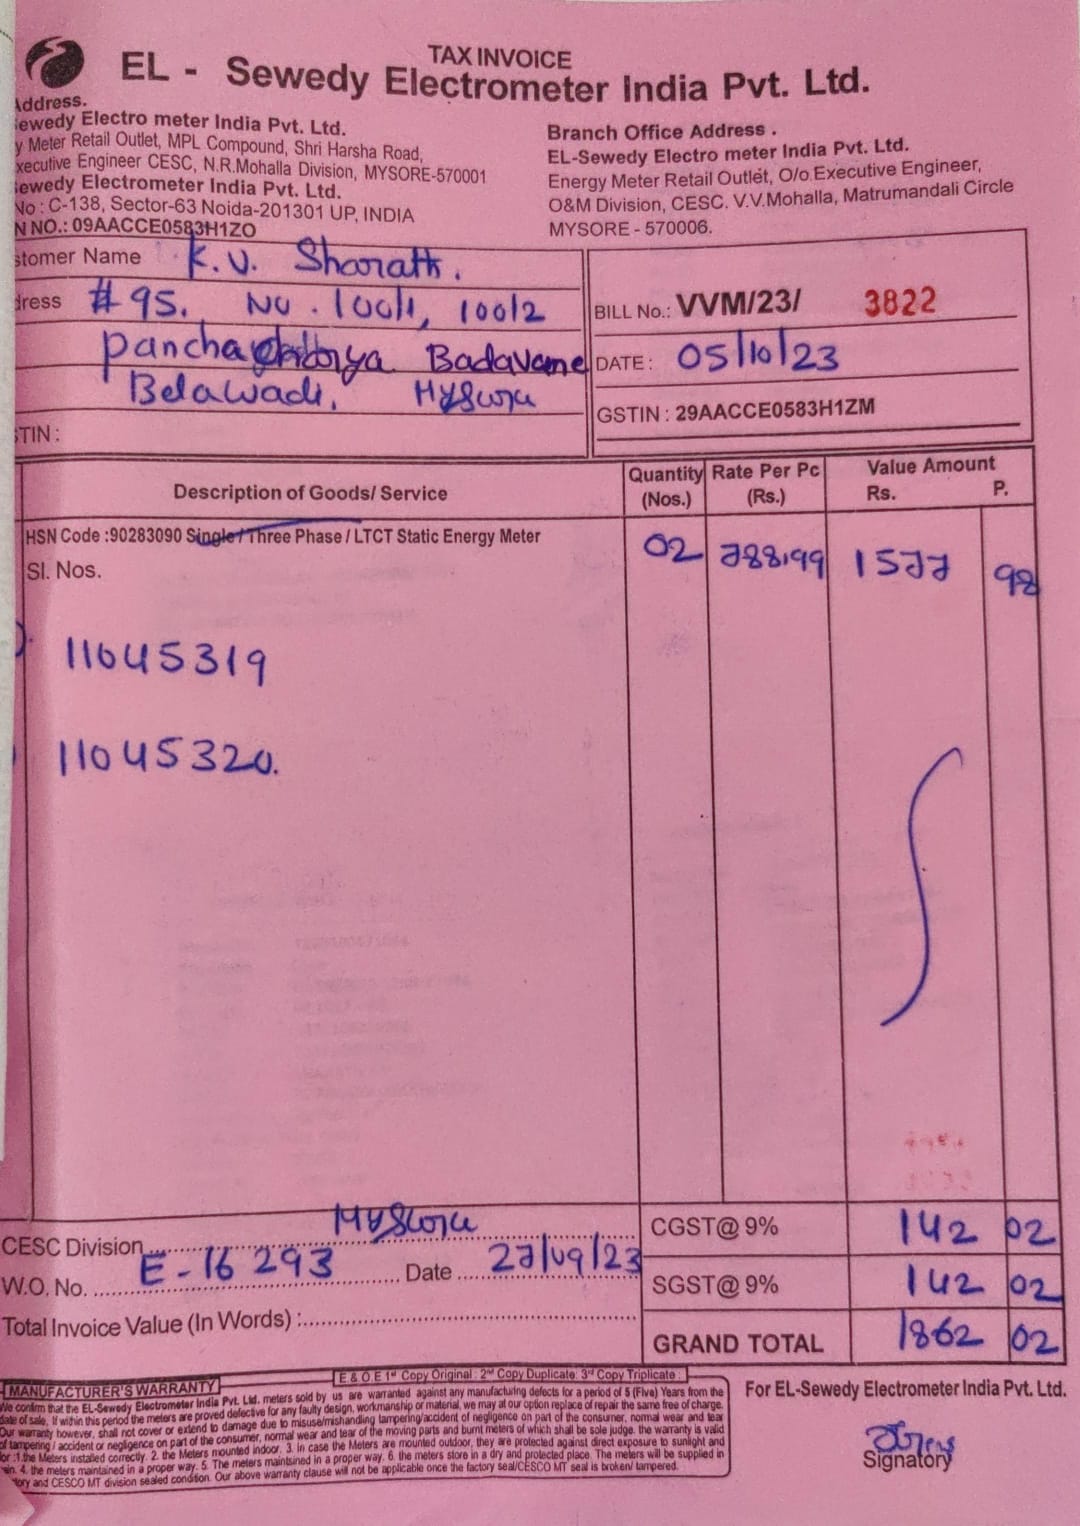 TAX INVOICE
EL - Sewedy Electrometer India Pvt. Ltd.
Address.
Sewedy Electro meter India Pvt. Ltd.
y Meter Retail Outlet, MPL Compound, Shri Harsha Road,
xecutive Engineer CESC, N.R.Mohalla Division, MYSORE-570001
Sewedy Electrometer India Pvt. Ltd.
No : C-138, Sector-63 Noida-201301 UP, INDIA
N NO.: 09AACCE0583H1ZO
Branch Office Address .
EL-Sewedy Electro meter India Pvt. Ltd.
Energy Meter Retail Outlet, O/o.Executive Engineer,
O&M Division, CESC. V.V.Mohalla, Matrumandali Circle
MYSORE - 570006.
stomer Name K.V. Sharath.
dress #95, No. 100/1, 100/2
Badavane
Belawadi, Mysore
STIN :
BILL No.: VVM/23/ 3822
DATE : 05/10/23
GSTIN : 29AACCE0583H1ZM
Description of Goods/ Service Quantity (Nos.) Rate Per Pc (Rs.) Value Amount Rs. P.
HSN Code :90283090 Single / Three Phase / LTCT Static Energy Meter 02 788.99 1577 98
Sl. Nos.
11045319
11045320.
CESC Division Mysore
W.O. No. E-16293 Date 27/09/23
Total Invoice Value (In Words) :
CGST@ 9% 142 02
SGST@ 9% 142 02
GRAND TOTAL 1862 02
E & O.E 1st Copy Original : 2nd Copy Duplicate: 3rd Copy Triplicate :
MANUFACTURER'S WARRANTY
We confirm that the EL-Sewedy Electrometer India Pvt. Ltd. meters sold by us are warranted against any manufacturing defects for a period of 5 (Five) Years from the
date of sale. If within this period the meters are proved defective for any faulty design, workmanship or material, we may at our option replace of repair the same free of charge.
Our warranty however, shall not cover or extend to damage due to misuse/mishandling tampering/accident of negligence on part of the consumer, normal wear and tear
of tampering / accident or negligence on part of the consumer, normal wear and tear of the moving parts and burnt meters of which shall be sole judge. the warranty is valid
for :1.the Meters installed correctly. 2. the Meters mounted indoor. 3. In case the Meters are mounted outdoor, they are protected against direct exposure to sunlight and
rain. 4. the meters maintained in a proper way. 5. The meters maintsined in a proper way. 6. the meters store in a dry and protected place. The meters will be supplied in
tory and CESCO MT division sealed condition. Our above warranty clause will not be applicable once the factory seal/CESCO MT seal is broken/ tampered.
For EL-Sewedy Electrometer India Pvt. Ltd.
Signatory